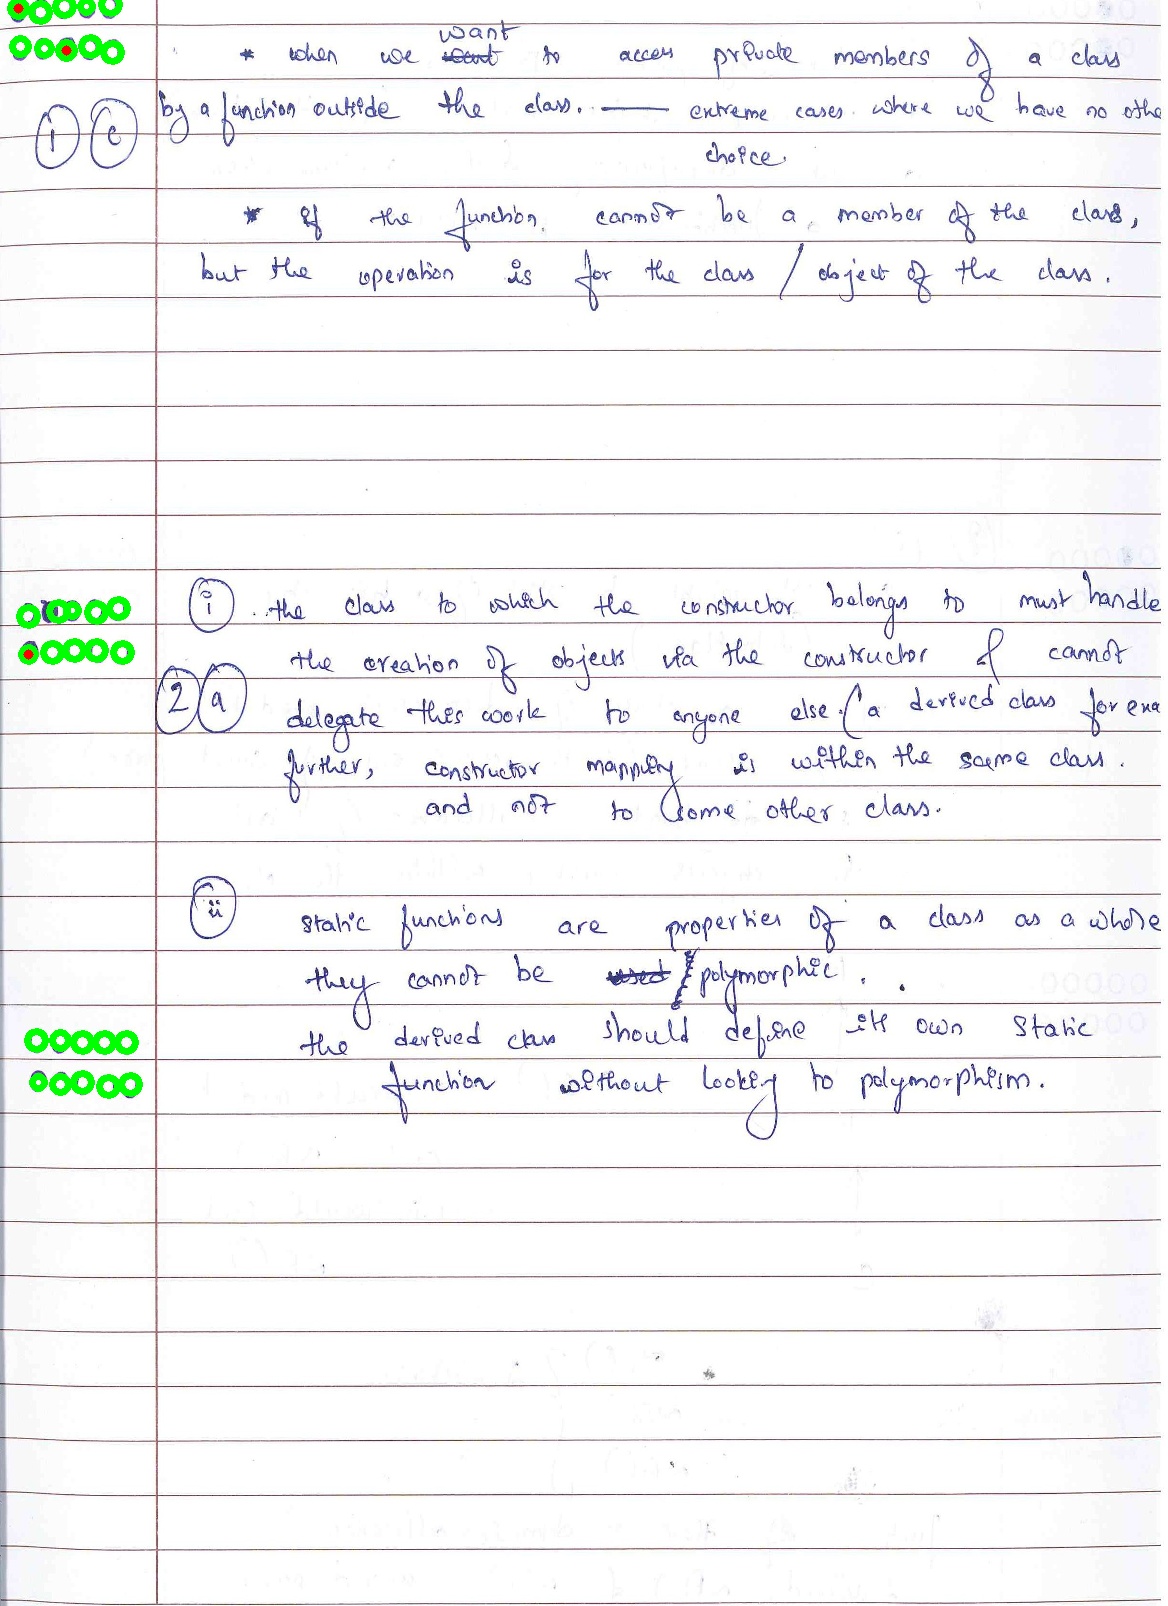 want
* when we want to access private members of a class
1 c by a function outside the class. — extreme cases where we have no othe
choice.
* If the function cannot be a member of the class,
but the operation is for the class / object of the class.
i the class to which the constructor belongs to must handle
the creation of objects via the constructor & cannot
2 a delegate this work to anyone else. (a derived class for exa
further, constructor mapping is within the same class.
and not to some other class.
ii static functions are properties of a class as a whole
they cannot be used polymorphic.
the derived class should define its own static
function without looking to polymorphism.